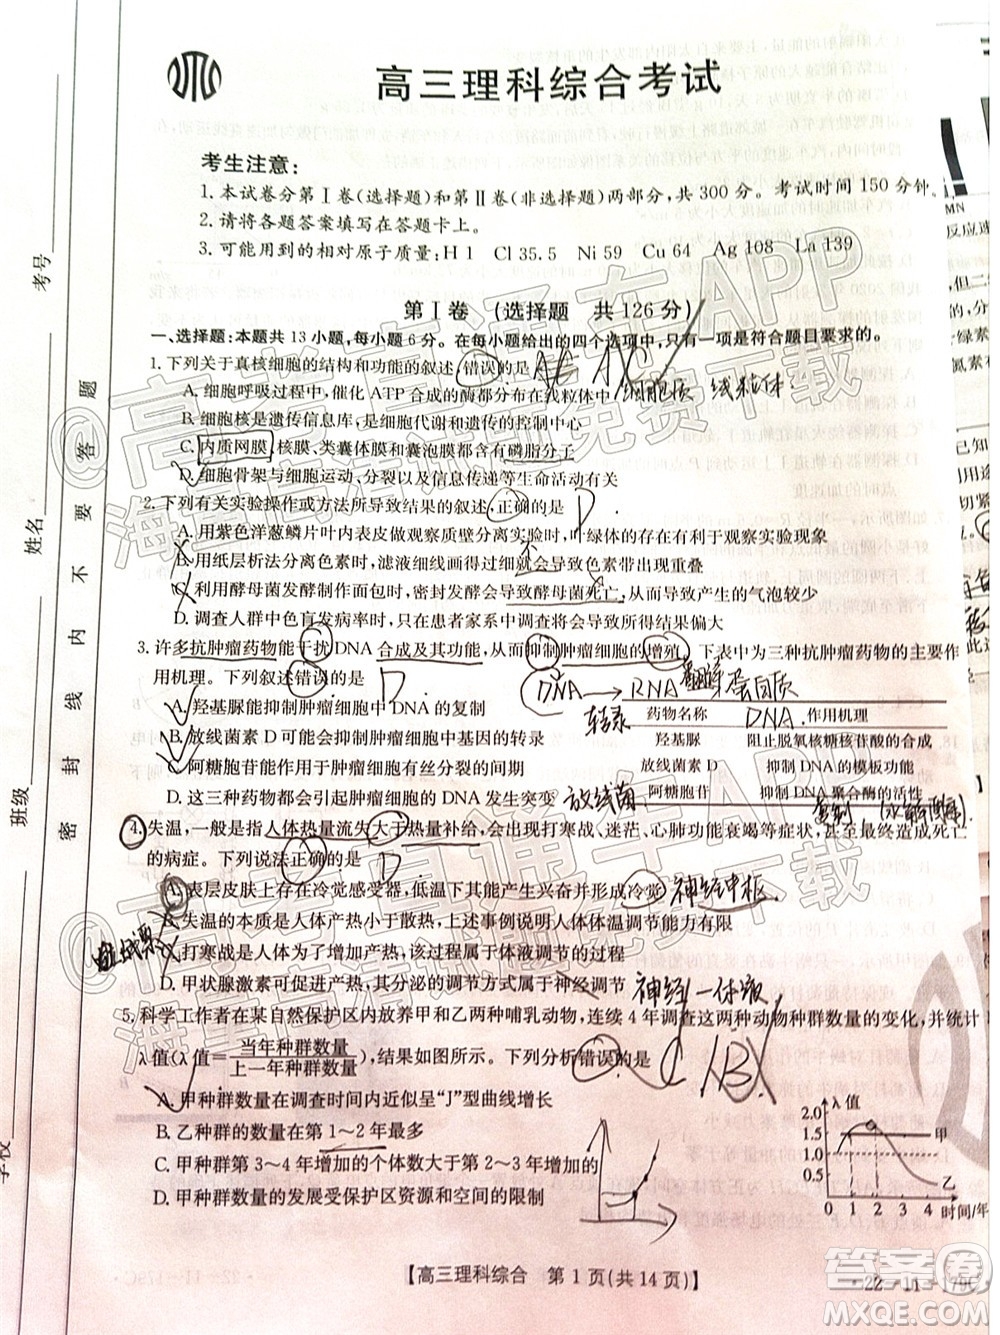 高三理科综合考试
考生注意:
1.本试卷分第Ⅰ卷(选择题)和第Ⅱ卷(非选择题)两部分,共300分。考试时间150分钟。
2.请将各题答案填写在答题卡上。
3.可能用到的相对原子质量:H 1 Cl 35.5 Ni 59 Cu 64 Ag 108 La 139
第Ⅰ卷 (选择题 共126分)
一、选择题:本题共13小题,每小题6分。在每小题给出的四个选项中,只有一项是符合题目要求的。
1.下列关于真核细胞的结构和功能的叙述,错误的是
A.细胞呼吸过程中,催化ATP合成的酶都分布在线粒体中 细胞质 线粒体
B.细胞核是遗传信息库,是细胞代谢和遗传的控制中心
C.内质网膜、核膜、类囊体膜和囊泡膜都含有磷脂分子
D.细胞骨架与细胞运动、分裂以及信息传递等生命活动有关
2.下列有关实验操作或方法所导致结果的叙述,正确的是 D
A.用紫色洋葱鳞片叶内表皮观察质壁分离实验时,叶绿体的存在有利于观察实验现象
B.用纸层析法分离色素时,滤液细线画得过粗会导致色素带出现重叠
C.利用酵母菌发酵制作面包时,密封发酵会导致酵母菌死亡,从而导致产生的气泡较少
D.调查人群中色盲发病率时,只在患者家系中调查会导致所得结果偏大
3.许多抗肿瘤药物能干扰DNA合成及其功能,从而抑制肿瘤细胞的增殖。下表中为三种抗肿瘤药物的主要作
用机理。下列叙述错误的是 D
DNA → RNA 翻译 蛋白质
转录
A.羟基脲能抑制肿瘤细胞中DNA的复制
B.放线菌素D可能会抑制肿瘤细胞中基因的转录
C.阿糖胞苷能作用于肿瘤细胞有丝分裂的间期
D.这三种药物都会引起肿瘤细胞的DNA发生突变
药物名称 作用机理
羟基脲 阻止脱氧核糖核苷酸的合成
放线菌素D 抑制DNA的模板功能
阿糖胞苷 抑制DNA聚合酶的活性
4.失温,一般是指人体热量流失大于热量补给,会出现打寒战、迷茫、心肺功能衰竭等症状,甚至最终造成死亡
的病症。下列说法正确的是
A.表层皮肤上存在冷觉感受器,低温下其能产生兴奋并形成冷觉 神经中枢
B.失温的本质是人体产热小于散热,上述事例说明人体体温调节能力有限
C.打寒战是人体为了增加产热,该过程属于体液调节的过程
D.甲状腺激素可促进产热,其分泌的调节方式属于神经调节 神经-体液
5.科学工作者在某自然保护区内放养甲和乙两种哺乳动物,连续4年调查这两种动物种群数量的变化,并统计
λ值(λ值=当年种群数量/上一年种群数量),结果如图所示。下列分析错误的是
A.甲种群数量在调查时间内近似呈“J”型曲线增长
B.乙种群的数量在第1~2年最多
C.甲种群第3~4年增加的个体数大于第2~3年增加的
D.甲种群数量的发展受保护区资源和空间的限制
λ值
2.0
1.5
1.0
0.5
甲
乙
0 1 2 3 4 时间/年
【高三理科综合 第1页(共14页)】
·22-11-179C·
考号
姓名
班级
学校
密封线内不要答题
@高考直通车APP
海量高清试题免费下载
@高考直通车APP
海量高清试题免费下载